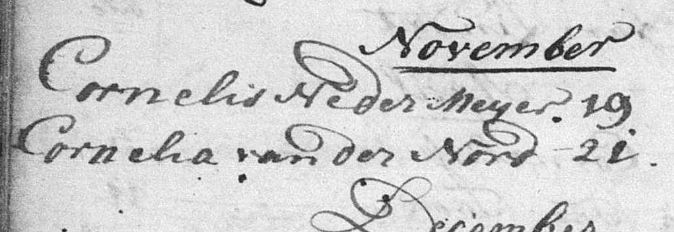 November
Cornelis Neder Meyer. 19
Cornelia van der Nord 21.
December